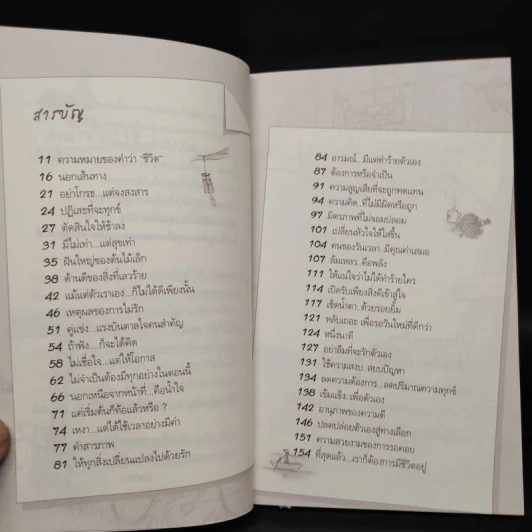 สารบัญ
11 ความหมายของคำว่า "ชีวิต"
16 นอกเส้นทาง
21 อย่าโกรธ...แต่จงสงสาร
24 ปฏิเสธที่จะทุกข์
27 ตัดสินใจให้ช้าลง
31 มีไม่เท่า...แต่สุขเท่า
35 ฝันใหญ่ของต้นไม้เล็ก
38 ด้านดีของสิ่งที่เลวร้าย
42 แม้แต่ตัวเราเอง...ก็ไม่ได้ดีเพียงนั้น
46 เหตุผลของการไม่รัก
51 คู่แข่ง...แรงบันดาลใจคนสำคัญ
54 ถ้าฟัง....ก็จะได้คิด
58 ไม่เชื่อใจ...แต่ให้โอกาส
62 ไม่จำเป็นต้องมีทุกอย่างในตอนนี้
66 นอกเหนือจากหน้าที่...คือน้ำใจ
71 แค่เริ่มต้นก็ท้อแล้วหรือ ?
74 เหงา...แต่ได้ใช้เวลาอย่างมีค่า
77 คำสารภาพ
81 ให้ทุกสิ่งเปลี่ยนแปลงไปด้วยรัก
84 อารมณ์...มีแต่ทำร้ายตัวเอง
87 ต้องการหรือจำเป็น
91 ความสูญเสียที่จะถูกทดแทน
94 ความคิด...ที่ไม่มีผิดหรือถูก
97 มิตรภาพที่ไม่จอมปลอม
101 เปลี่ยนหัวใจให้ใสขึ้น
104 คนของวันเวลา..มีคุณค่าเสมอ
107 ล้มเหลว...คือพลัง
111 ให้แน่ใจว่าไม่ได้ทำร้ายใคร
114 เปิดรับเพียงสิ่งดีเข้าสู่ใจ
117 เช็ดน้ำตา..ด้วยรอยยิ้ม
121 หลับเถอะ เพื่อรอวันใหม่ที่ดีกว่า
124 หนึ่งนาที
127 อย่าลืมที่จะรักตัวเอง
131 ใช้ความสงบ...สยบปัญหา
134 ลดความต้องการ...ลดปริมาณความทุกข์
138 เข้มแข็ง...เพื่อตัวเอง
142 อานุภาพของความดี
146 ปลดปล่อยตัวเองสู่ทางเลือก
151 ความสวยงามของการรอคอย
154 ที่สุดแล้ว...เราก็ต้องการมีชีวิตอยู่